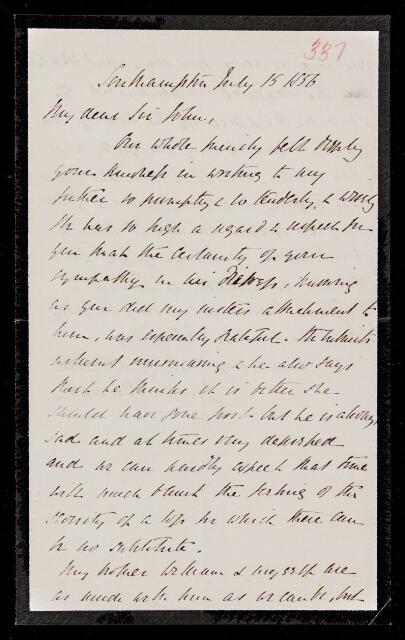 337
Southampton July 15 1856
My dear Sir John,
Our whole family felt deeply
your kindness in writing to my
father so promptly & so tenderly, & warmly
He has so high a regard & respect for
you that the certainty of your
sympathy in his Distress, knowing
as you did my sister's attachment to
him, was especially grateful. He submits
without murmuring & he also says
that he thinks it is better she
should have gone first but he is always
sad and at times very depressed
and we can hardly expect that time
will much blunt the feeling of the
severity of a loss for which there can
be no substitute.
My brother William & myself are
as much with him as we can be, but